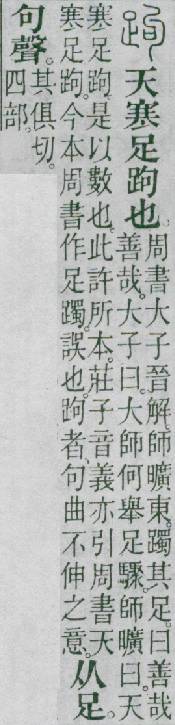 跔 天寒足跔也。周書大子晉解。師曠東躅其足。曰善哉
善哉。大子曰大師何舉足驟。師曠曰。天
寒足跔。是以數也。此許所本。莊子音義亦引周書天
寒足跔。今本周書作足躅。誤也。跔者、句曲不伸之意。从足。
句聲。其俱切。
四部。